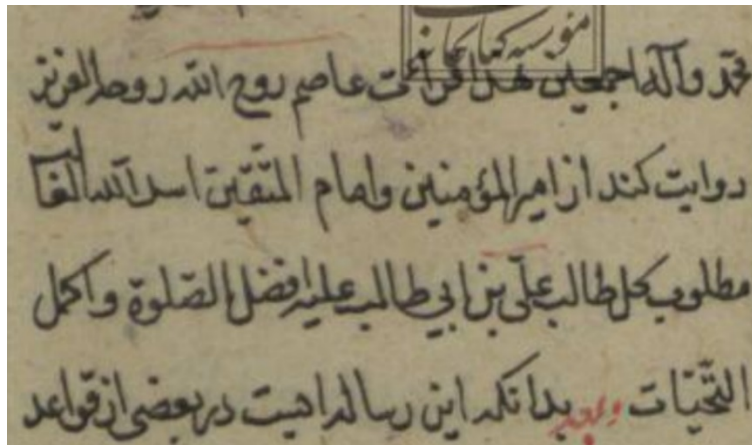 محمد وآله اجمعین هذا قرائت عاصم روح الله روحه العزیز
روایت کند از امیر المؤمنین وامام المتّقین اسد الله الغالب
مطلوب کل طالب علیّ بن ابي طالب علیه افضل الصّلوة واکمل
التّحیّات وبعد بدانکه این رساله ایست در بعضی از قواعد